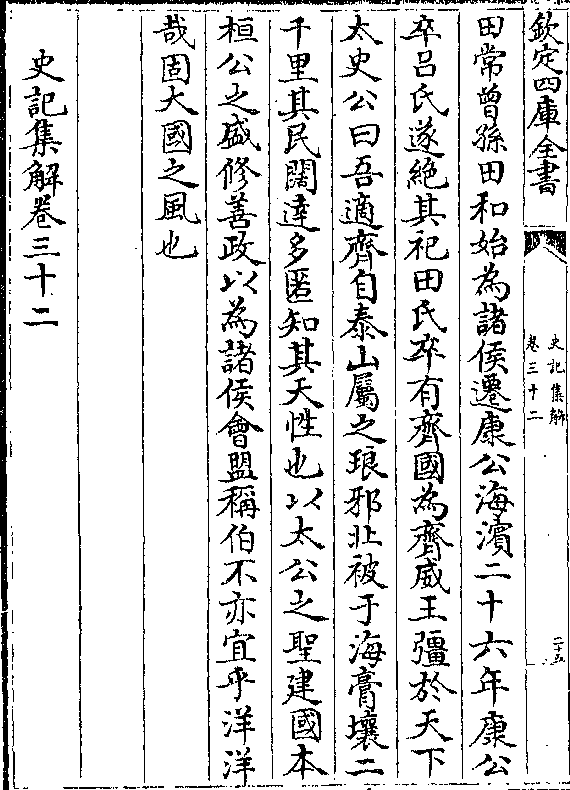 欽定四庫全書
史記集解
卷三十二
二十五
田常曾孫田和始為諸侯遷康公海濱二十六年康公
卒吕氏遂絶其祀田氏卒有齊國為齊威王彊於天下
太史公曰吾適齊自泰山屬之琅邪北被于海膏壤二
千里其民闊達多匿知其天性也以太公之聖建國本
桓公之盛修善政以為諸侯會盟稱伯不亦宜乎洋洋
哉固大國之風也
史記集解卷三十二